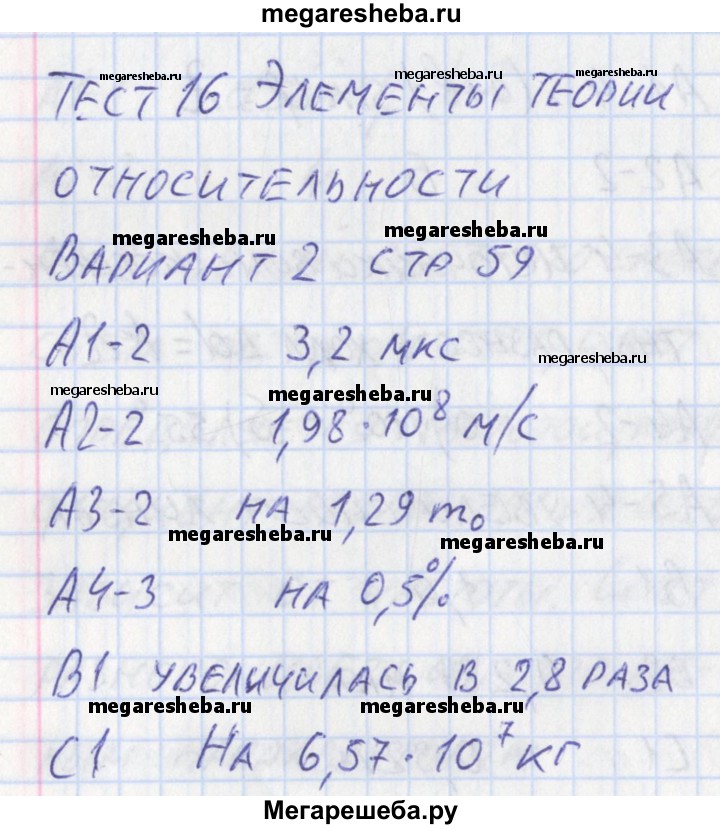 megaresheba.ru
megaresheba.ru megaresheba.ru megaresheba.ru
ТЕСТ 16 ЭЛЕМЕНТЫ ТЕОРИИ
ОТНОСИТЕЛЬНОСТИ
megaresheba.ru megaresheba.ru
ВАРИАНТ 2 СТР 59
А1-2 3,2 МКС
megaresheba.ru
megaresheba.ru megaresheba.ru
А2-2 1,98·10⁸ М/С
А3-2 НА 1,29 m₀
megaresheba.ru megaresheba.ru
А4-3 НА 0,5%
В1 УВЕЛИЧИЛАСЬ В 2,8 РАЗА
megaresheba.ru megaresheba.ru
С1 НА 6,57·10⁷ КГ
Мегарешеба.ру